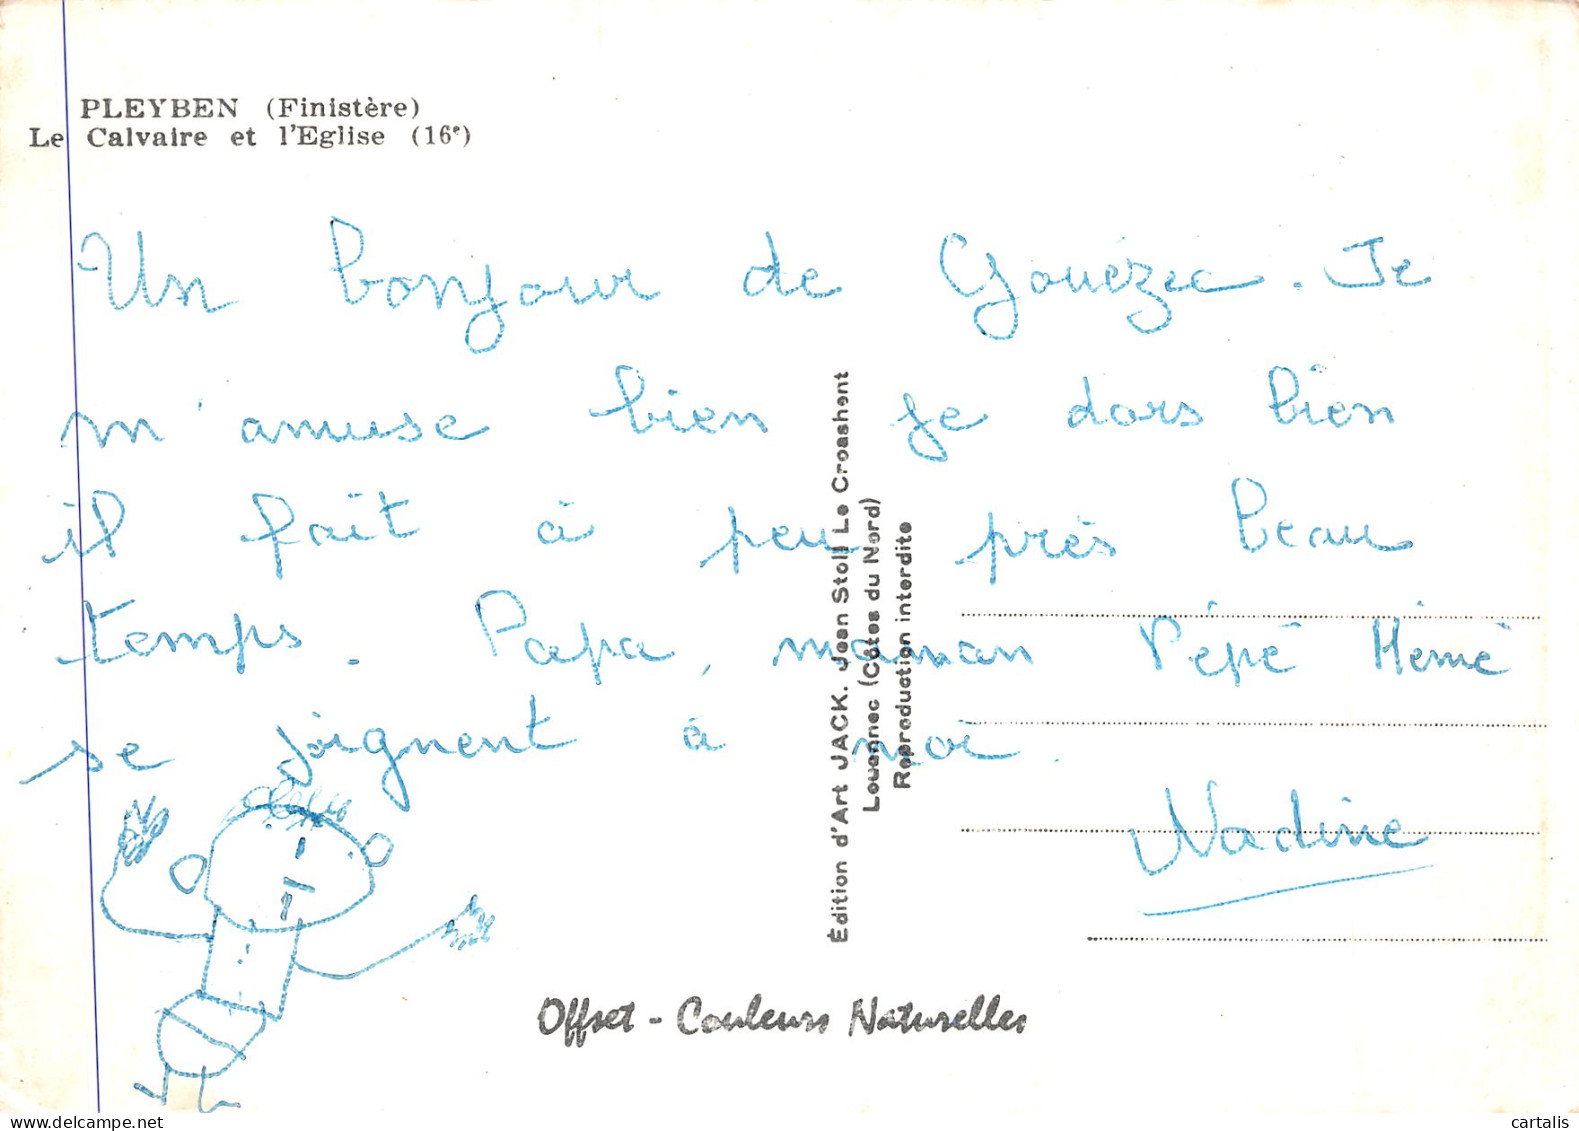 PLEYBEN (Finistère)
Le Calvaire et l'Eglise (16ᵉ)
Un bonjour de Gouézec. Je
m'amuse bien je dors bien
il fait à peu près beau
temps. Papa, maman Pépé Mémé
se joignent à moi.
Nadine
Édition d'Art JACK. Jean Stoll Le Croashent
Louannec (Côtes du Nord)
Reproduction interdite
Offset - Couleurs Naturelles
cartalis
delcampe.net